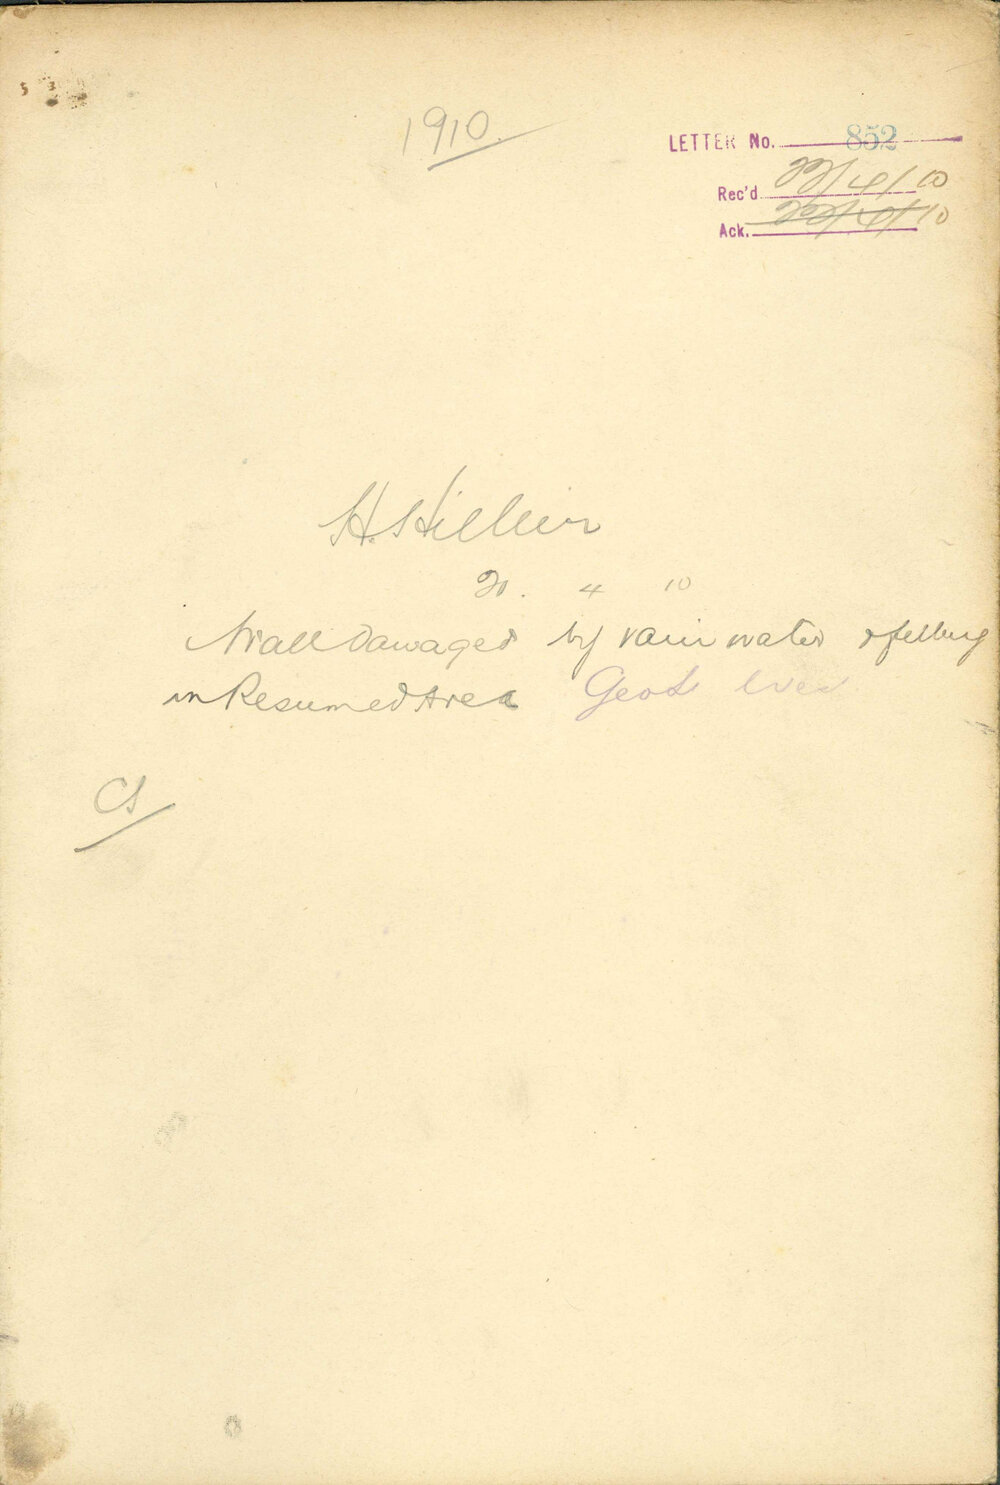 1910
LETTER No. 852
Rec'd 22/4/10
Ack. 22/4/10
H. Hillier
20. 4 10
Wall Damaged by rain water & felling
in Resumed Area Geo St West
CS